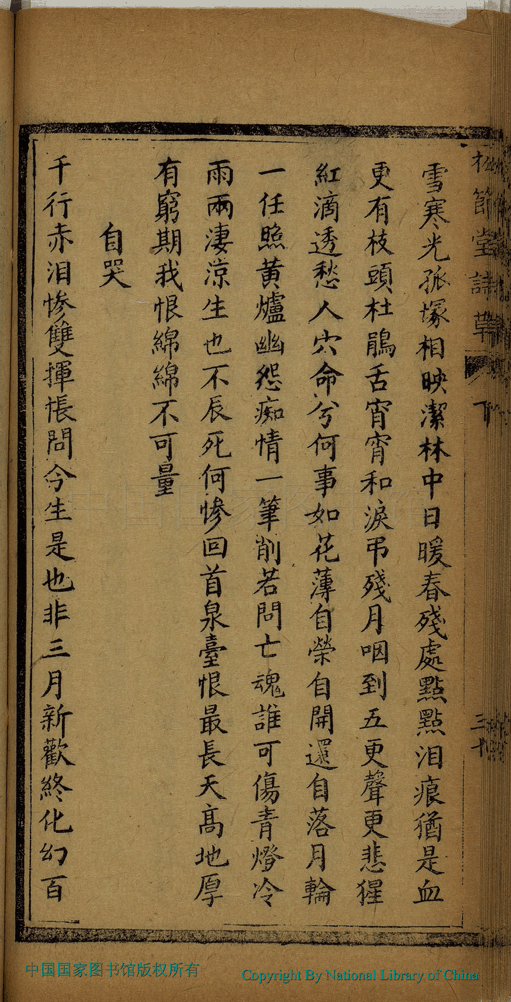 松節堂詩草 下 三十
雪寒光孤塚相映潔林中日暖春殘處點點泪痕猶是血
更有枝頭杜鵑舌宵宵和淚弔殘月咽到五更聲更悲猩
紅滴透愁人穴命兮何事如花薄自榮自開還自落月輪
一任照黃爐幽怨痴情一筆削若問亡魂誰可傷青燈冷
雨兩淒涼生也不辰死何慘回首泉臺恨最長天高地厚
有窮期我恨綿綿不可量
自哭
千行赤泪慘雙揮悵問今生是也非三月新歡終化幻百
中国国家图书馆版权所有
Copyright By National Library of China